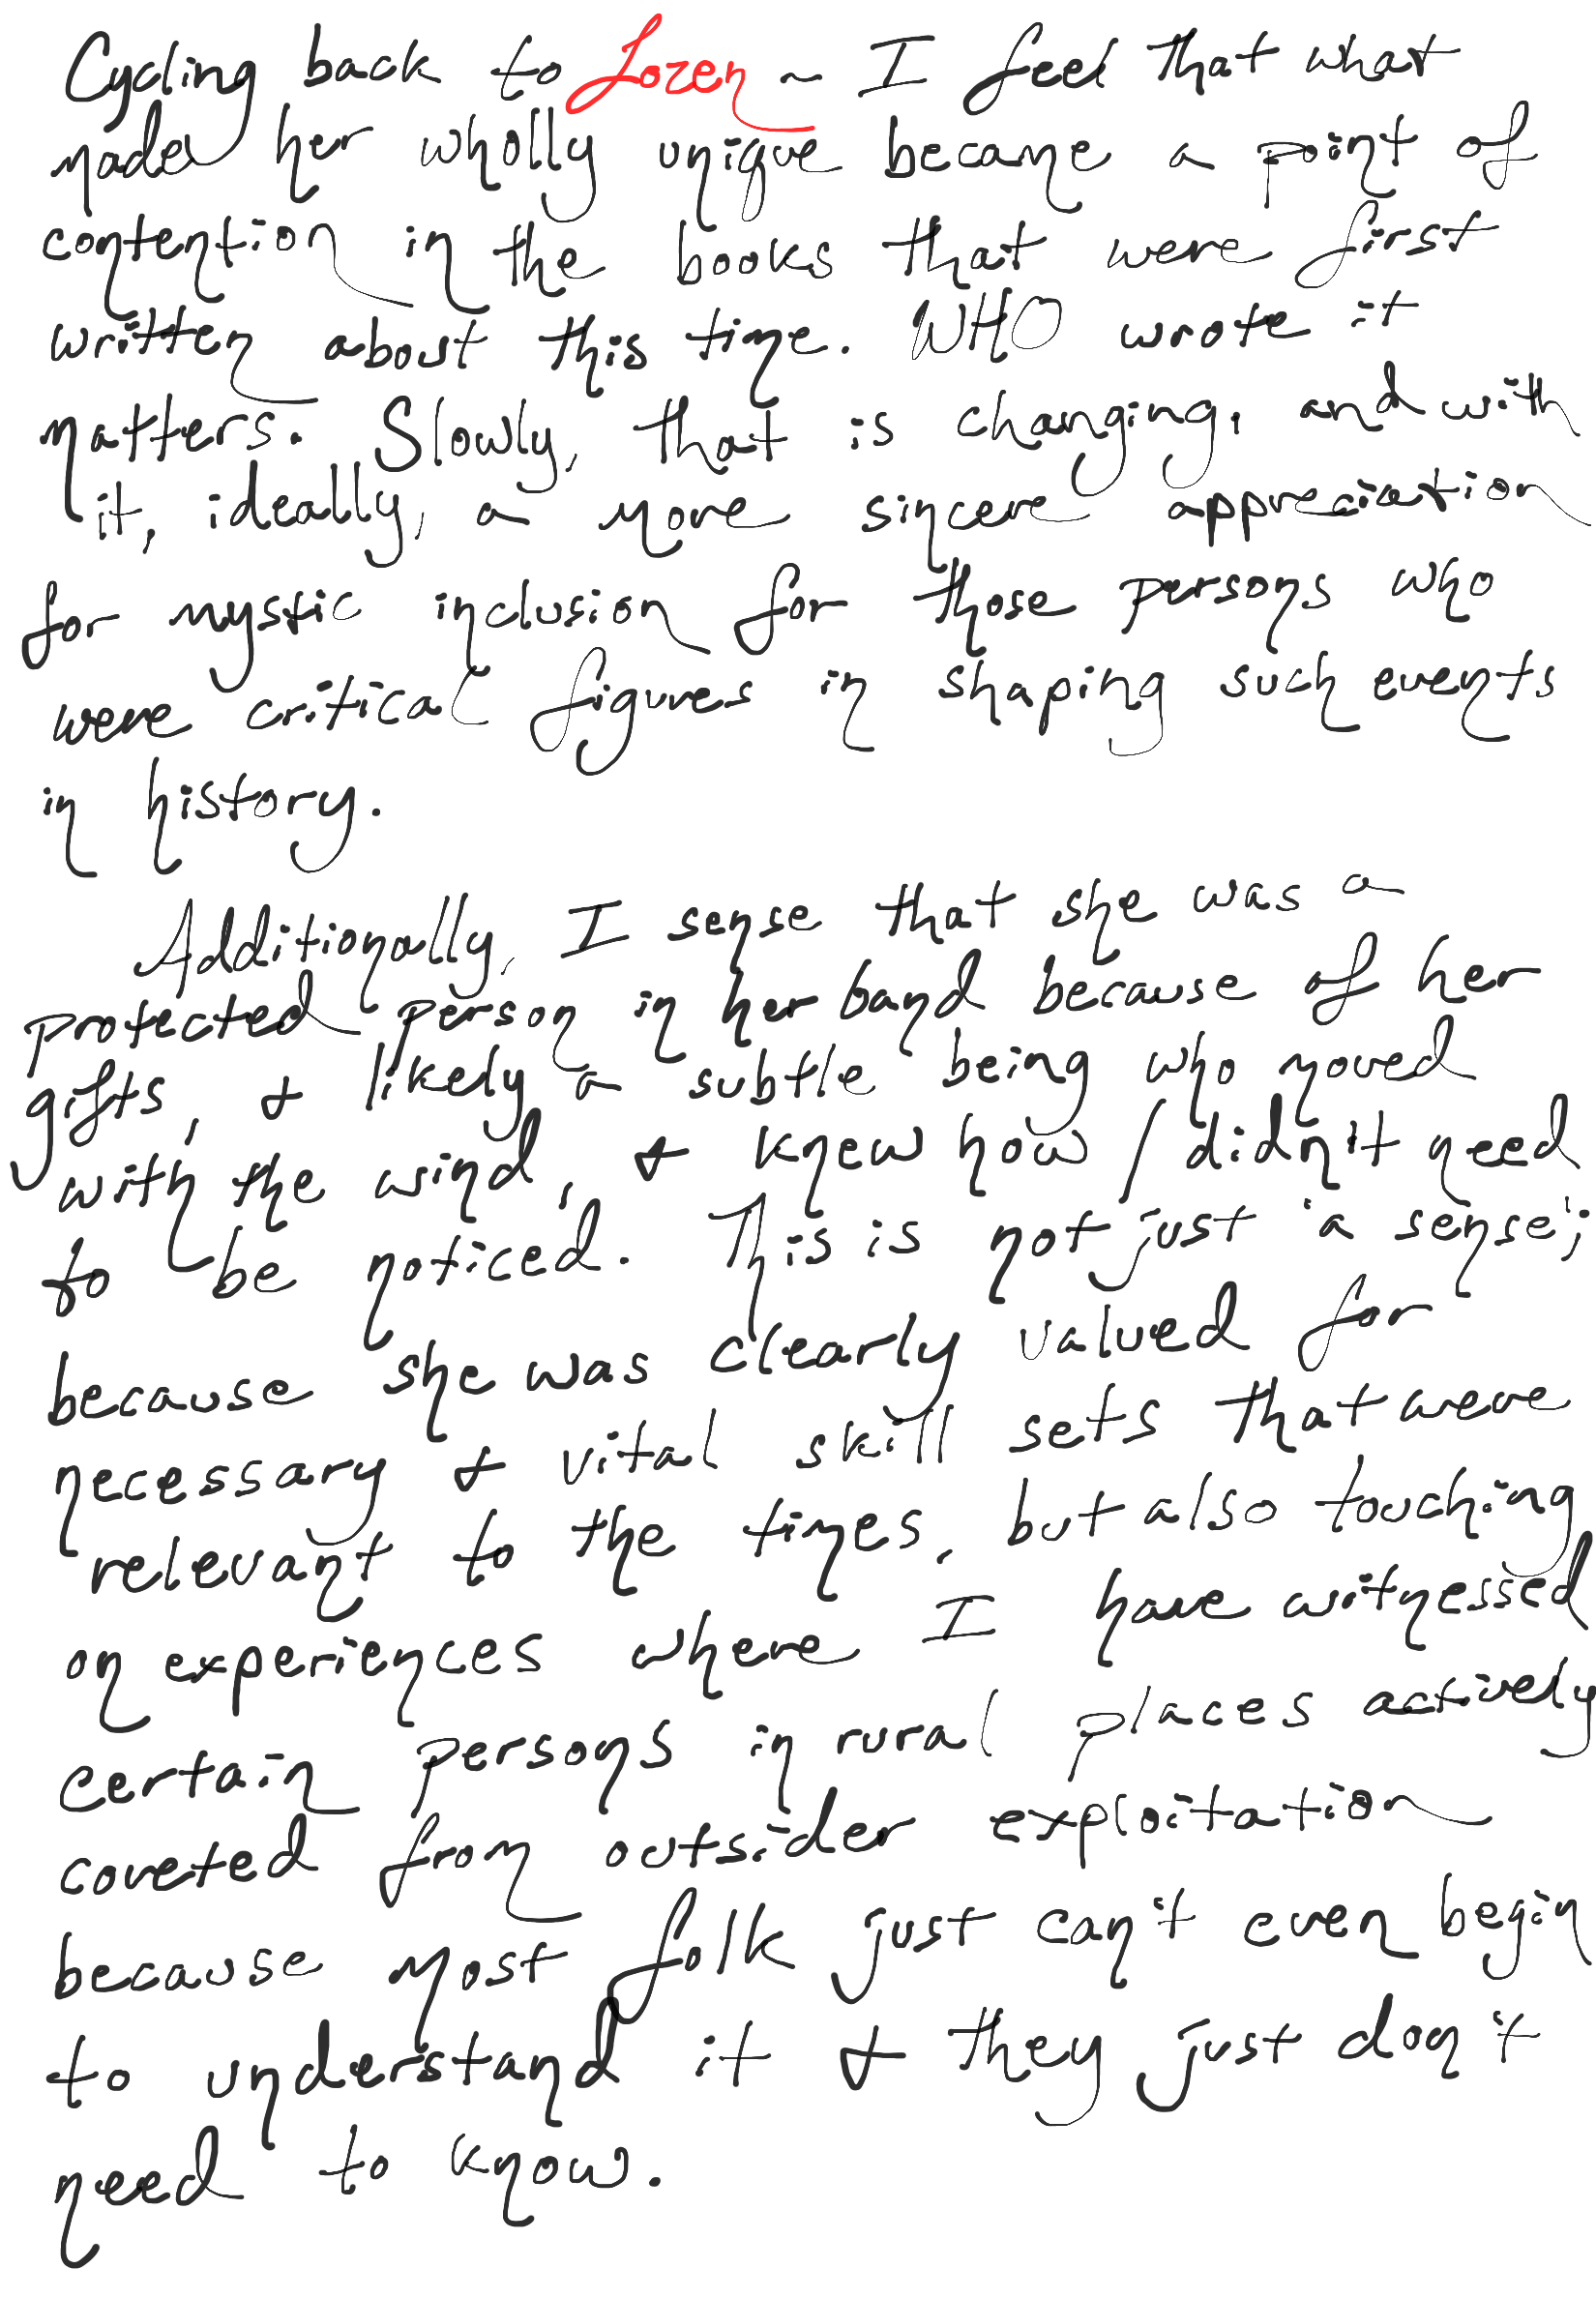 Cycling back to Lozen ~ I feel that what
made her wholly unique became a point of
contention in the books that were first
written about this time. WHO wrote it
matters. Slowly, that is changing, and with
it, ideally, a more sincere appreciation
for mystic inclusion for those persons who
were critical figures in shaping such events
in history.
Additionally, I sense that she was a
protected person in her band because of her
gifts, & likely a subtle being who moved
with the wind, & knew how / didn't need
to be noticed. This is not just 'a sense';
because she was clearly valued for
necessary & vital skill sets that were
relevant to the times, but also touching
on experiences where I have witnessed
certain persons in rural places actively
coveted from outsider exploitation
because most folk just can't even begin
to understand it & they just don't
need to know.